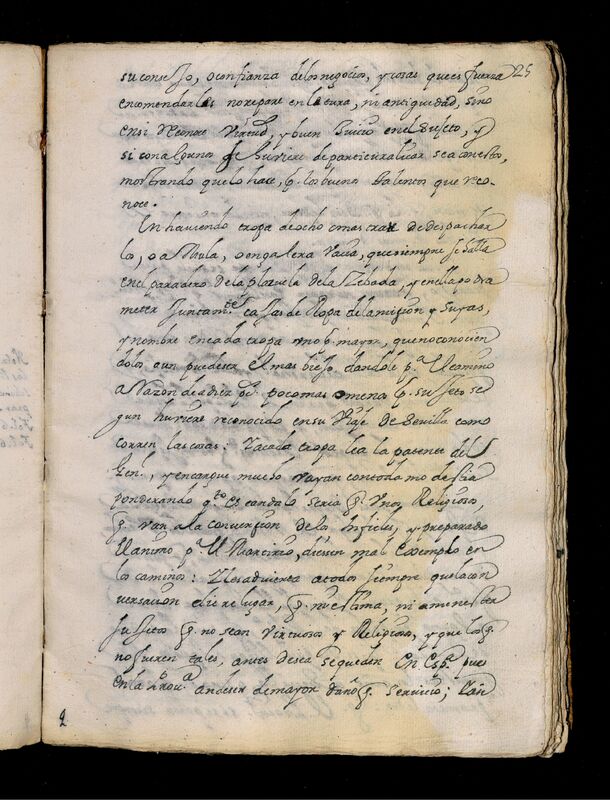 25
su consejo, o confianza delos negocios, y cosas quees fuerza
encomendarles no repare en la cura, ni antiguedad, sino
en si Virtud, y buen Juicio en el Sujeto, y
si con algunos se huviere de particularizar sea con estos,
mostrando que lo hace, p. los buenos talentos que reco-
noce.
En haviendo tropa de ocho o mas trate de despachar
los, o a Mula, o en galera vacia, que siempre se halla
en el paradero de la plazuela de la Zebada, y en ella podra
meter juntam.te caxas de Ropa dela mision y suyas,
y nombre en cada tropa uno p. mayor, que no conocien
dolos aun puede ser el mas viejo, dandole p.a el camino
a razon de a diez p.s poco mas o menos p. sujeto se
gun huviere reconocido en su Viaje de Sevilla como
corren las cosas: Y a cada tropa lea la patente del
Gen.l, y encargue mucho vayan con toda modestia
ponderando q.to escandalo seria q. unos Religiosos,
q. van a la conversion de los Infieles, y preparado
el animo p.a el Martirio, diesen mal exemplo en
los caminos: Y les advierta a todos siempre que la con
versacion diere lugar, q. no estima, ni a menester
sujetos q. no sean virtuosos y Religiosos, y que los q.
no fueren tales, antes desea se queden en Esp.a pues
en la Prov.a an de ser de mayor daño q. servicio; tan
2